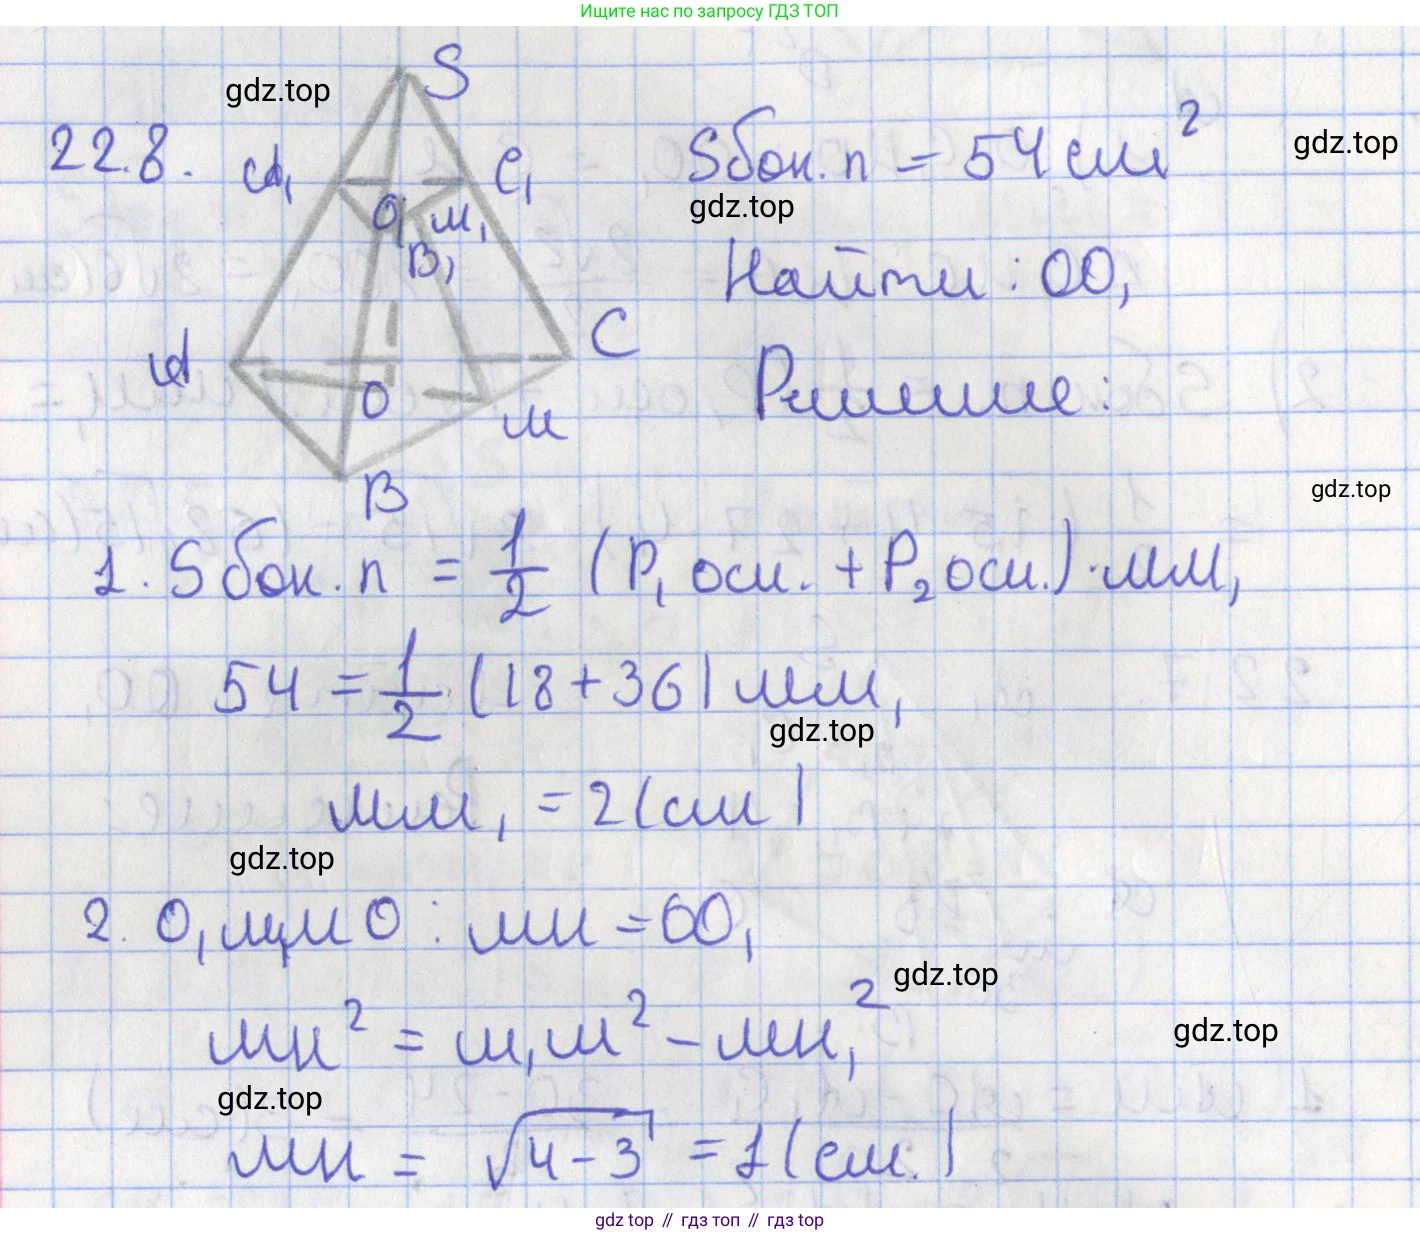 Ищите нас по запросу ГДЗ ТОП
S
gdz.top
22.8. A₁ C₁ Sбок.п = 54 см²
gdz.top
gdz.top
O₁ M₁
B₁
Найти: OO₁
C
A
Решение:
O
M
B
gdz.top
1. Sбок.п = 1/2 (P₁осн. + P₂осн.)·MM₁
54 = 1/2 (18+36) MM₁
gdz.top
MM₁ = 2 (см)
gdz.top
2. O₁M₁MO : MH = OO₁
gdz.top
MH² = M₁M² - MH₁²
gdz.top
gdz.top
MH = √4-3 = 1 (см.)
gdz top // гдз топ // гдз top